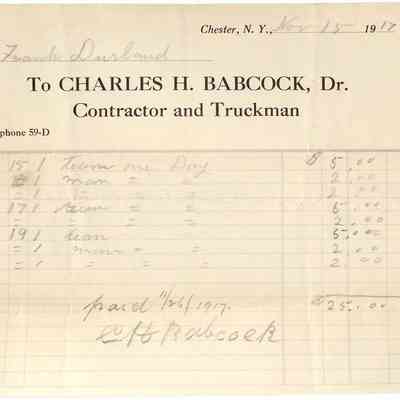 Chester, N. Y., Nov 15 1917
Frank Durland
To CHARLES H. BABCOCK, Dr.
Contractor and Truckman
phone 59-D
15 1 team one Day $ 5.00
= 1 man = = 2.00
= 1 = = = 2.00
17 1 team = = 5.00
= = = = 2.00
19 1 team = = 5.00
= 1 man = = 2.00
= 1 = = = 2.00
$25.00
paid 11/26/1917.
C H Babcock